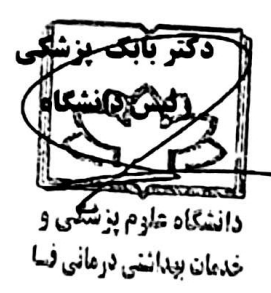 دکتر بابک پزشکی
رئیس دانشگاه
دانشگاه علوم پزشکی و
خدمات بهداشتی درمانی فسا